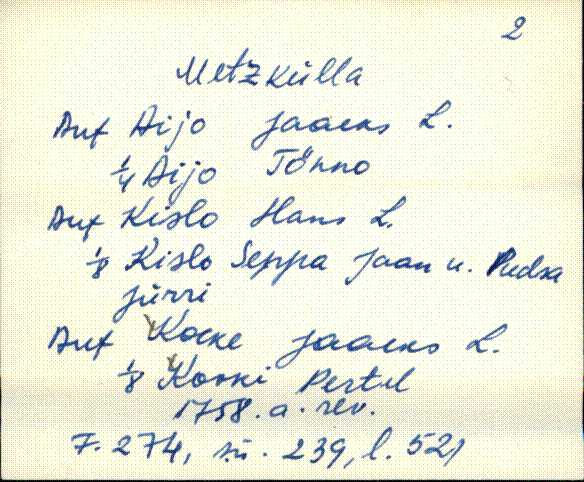 2
Metzkülla
Auf Aijo Jaacks L.
1/4 Aijo Tönno
Auf Kislo Hans L.
1/8 Kislo Seppa Jaan u. Pudsa
Jürri
Auf Kocke Jaacks L.
1/8 Koski Pertel
1758. a. rev.
F. 274, sü. 239, l. 521